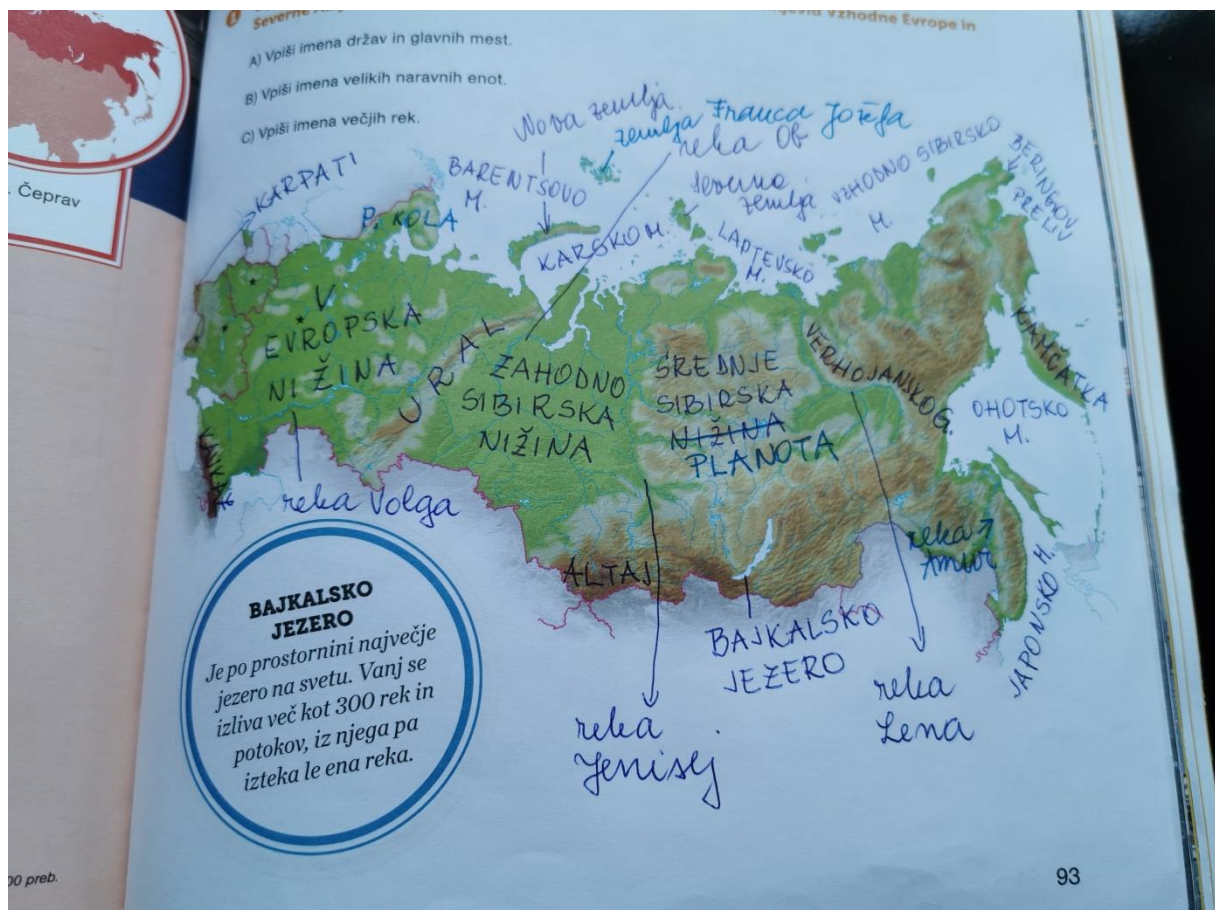 Vzhodne Evrope in
Severne
A) Vpiši imena držav in glavnih mest.
B) Vpiši imena velikih naravnih enot.
C) Vpiši imena večjih rek.
. Čeprav
Nova zemlja
zemlja Franca Jožefa
reka Ob
KARPATI
P. KOLA
BARENTSOVO
M.
KARSKO M.
Severna
zemlja
LAPTEVSKO
M.
VZHODNO SIBIRSKO
M.
BERINGOV
PRELIV
V
EVROPSKA
NIŽINA
URAL
ZAHODNO
SIBIRSKA
NIŽINA
SREDNJE
SIBIRSKA
NIŽINA
PLANOTA
VERHOJANSKO G.
KAMČATKA
OHOTSKO
M.
reka Volga
ALTAJ
reka
Amur
JAPONSKO M.
BAJKALSKO
JEZERO
reka
Jenisej
reka
Lena
BAJKALSKO
JEZERO
Je po prostornini največje
jezero na svetu. Vanj se
izliva več kot 300 rek in
potokov, iz njega pa
izteka le ena reka.
00 preb.
93